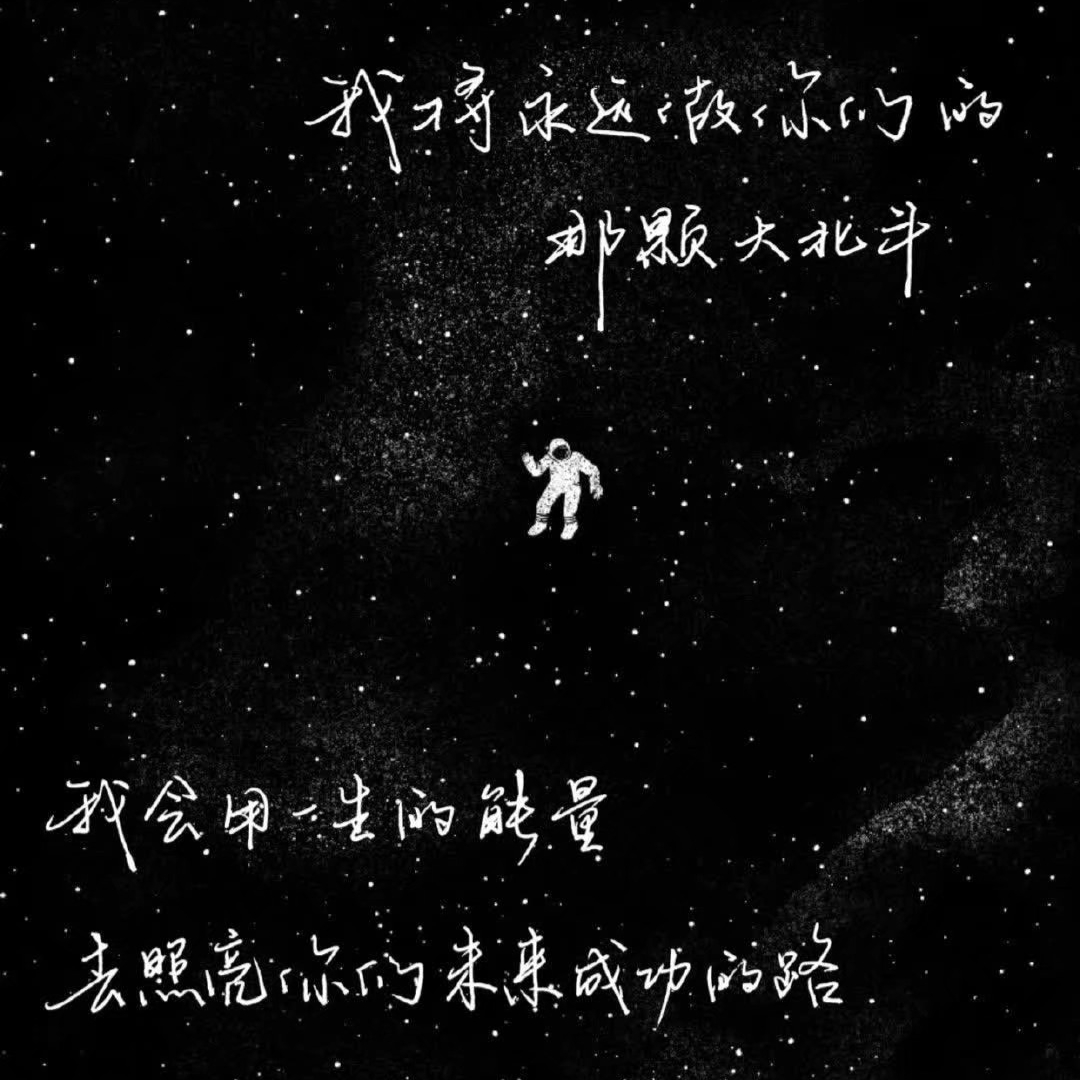 我将永远做你们的
那颗大北斗
我会用一生的能量
去照亮你们的未来成功的路